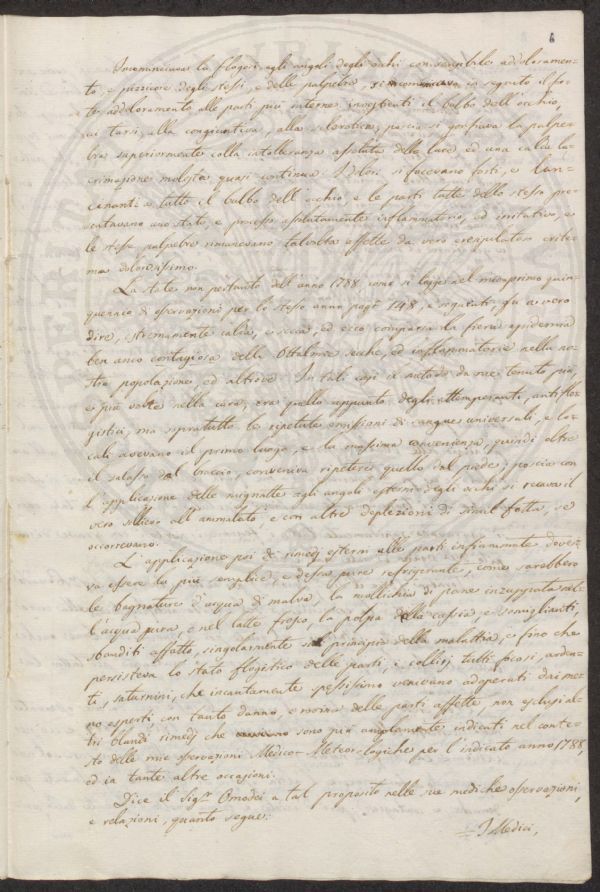 6
Incominciava la flogosi agli angoli degli occhi con sensibile addoloramen-
to, e pizzicore degli stessi, e delle palpebre, si in seguito il for-
te addoloramento alle parti più interne investienti il bulbo dell'occhio,
ai tarsi, alla congiuntiva, alla poscia si gonfiava la palpe-
bra superiormente colla intolleranza assoluta della luce ed una calda la-
crimazione molesta quasi continua. I dolori si facevano forti, e lan-
cinanti a tutto il bulbo dell'occhio, e le parti tutte dello stesso pre-
sentavano uno stato, e processo assolutamente infiammatorio, ed irritativo, e
le stesse palpebre rimanevano talvolta affette da vero
dolorosissimo.
La state non pertanto dell'anno 1788 come si legge nel mio primo quin-
quennio di osservazioni per lo stesso anno pag.e 148, e fu a vero
dire, estremamente calda, e secca, ed ecco comparsa la fiera epidemia
ben anco contagiosa delle Ottalmie secche, ed infiammatorie nella no-
stra popolazione, ed altrove. In tali casi il metodo da me tenuto più,
e più volte nella cura, era quello appunto degli attemperanti, antiflo-
gistici, ma sopratutto le ripetute emissioni di sangue universali, e lo-
cali avevano il primo luogo, e la massima convenienza, quindi oltre
il salasso dal braccio, conveniva ripetere quello dal piede, poscia con
l'applicazione delle mignatte agli angoli esterni degli occhi si recava il
vero sollievo all'ammalato, e con altre deplezioni di simil fatta, se
occorrevano.
L'applicazione poi de' rimedj esterni alle parti infiammate dove-
va essere la più semplice, e dessa pure refrigerante, come sarebbero
le bagnature d'acqua di malva, la mollichia di pane inzuppata nel-
l'acqua pura, e nel latte fresco, la polpa della cassia, e somiglianti,
sbanditi affatto, singolarmente nel principio della malattia, e fino che
persisteva lo stato flogistico delle parti, i collirj tutti focosi, arden-
ti, saturnini, che incautamente spessissimo venivano adoperati dai me-
no esperti con tanto danno, e rovina delle parti affette, non esclusi al-
tri blandi rimedj che sono più ampiamente indicati nel conte-
sto delle mie osservazioni Medico-Meteorologiche per l'indicato anno 1788,
ed in tante altre occasioni.
Dice il Sig.r Omodei a tal proposito nelle sue mediche osservazioni,
e relazioni, quanto segue:
I Medici,